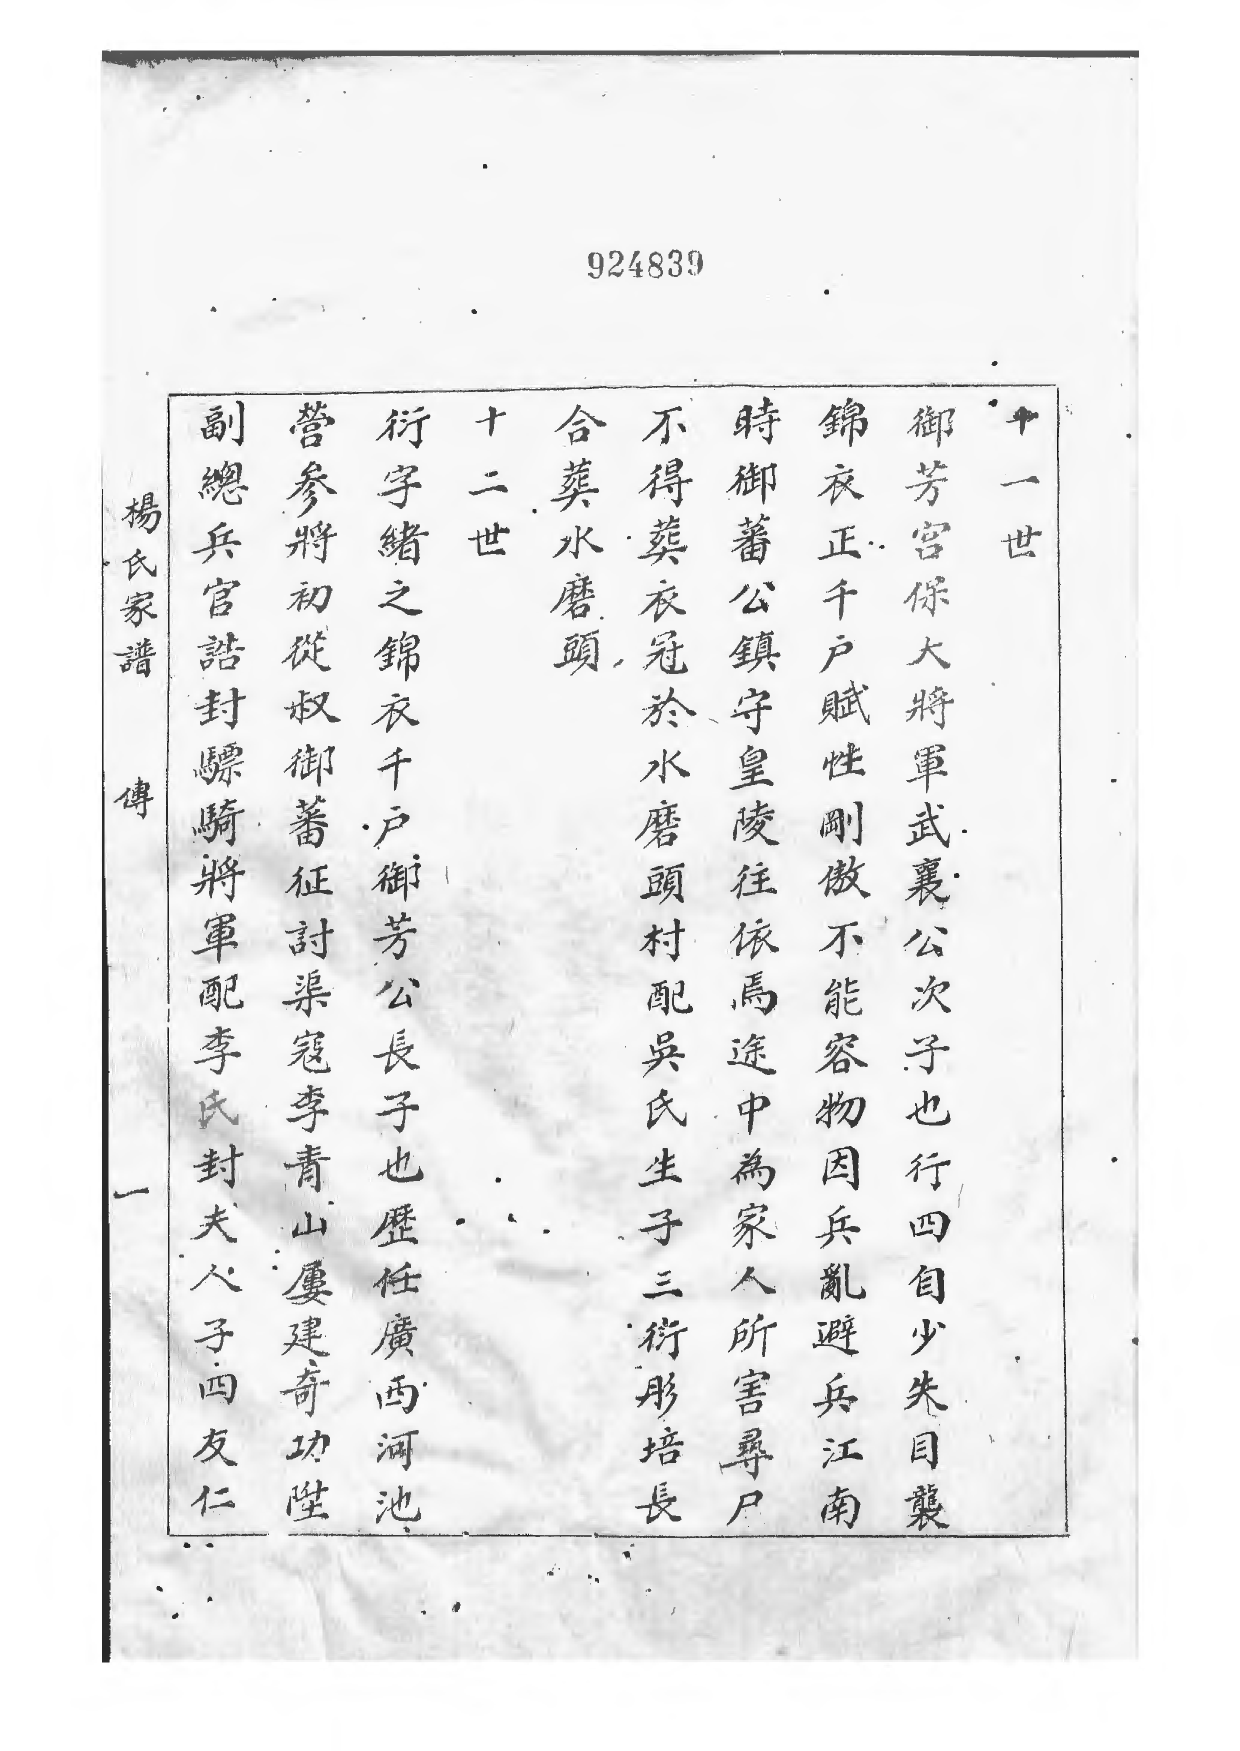 924839
十一世
御芳宮保大將軍武襄公次子也行四自少失目襲
錦衣正千户賦性剛傲不能容物因兵亂避兵江南
時御蕃公鎮守皇陵往依焉途中為家人所害尋尸
不得葬衣冠於水磨頭村配吳氏生子三衍彤培長
合葬水磨頭
十二世
衍字緒之錦衣千户御芳公長子也歷任廣西河池
營參將初從叔御蕃征討渠寇李青山屢建奇功陞
副總兵官誥封驃騎將軍配李氏封夫人子四友仁
楊氏家譜 傳 一